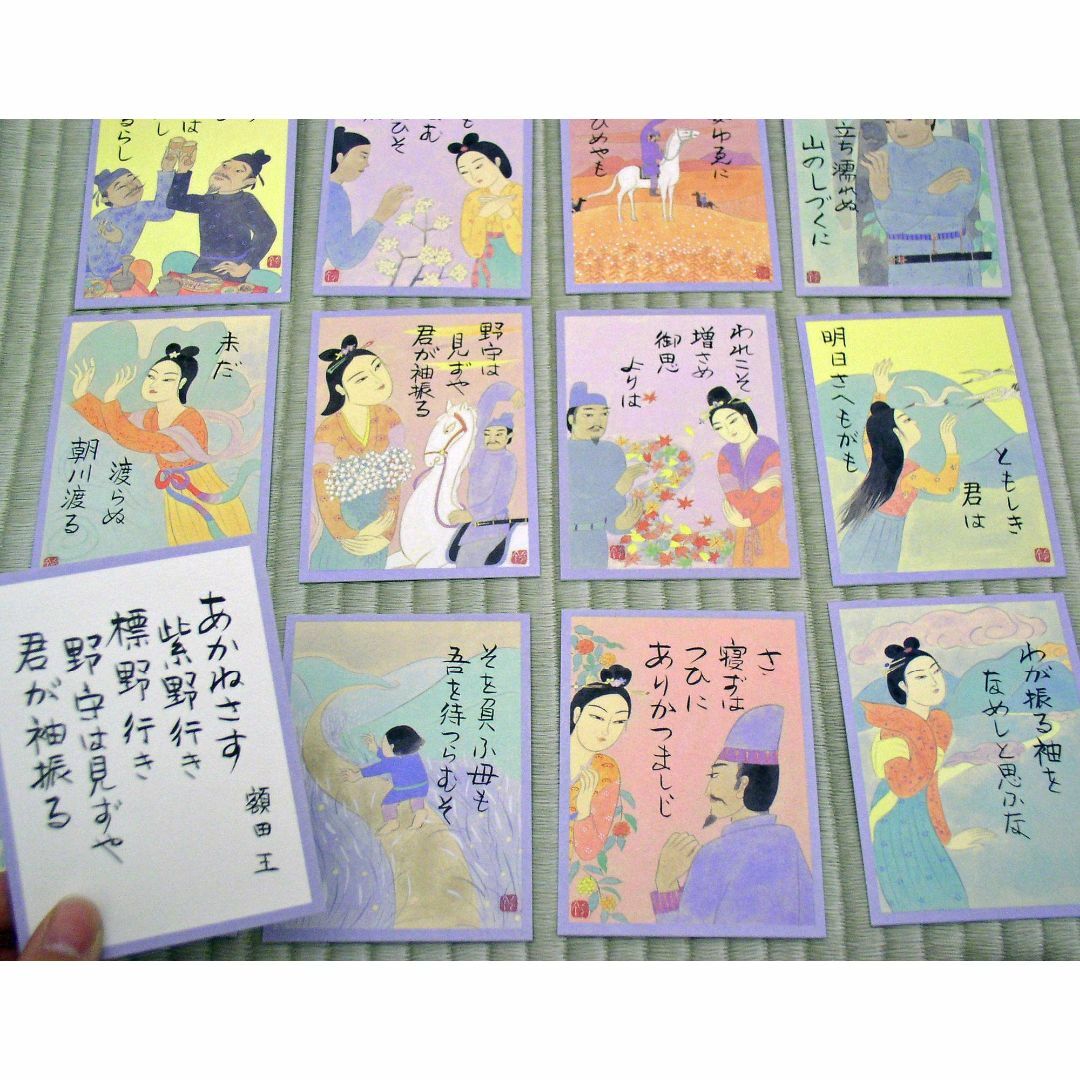 立ち濡れぬ
山のしづくに
未だ
渡らぬ
朝川渡る
野守は
見ずや
君が袖振る
われこそ
増さめ
御思
よりは
明日さへもがも
ともしき
君は
あかねさす
紫野行き
標野行き
野守は見ずや
君が袖振る
額田王
そを負ふ母も
吾を待つらむそ
さ
寝ずは
つひに
ありかつましじ
わが振る袖を
なめしと思ふな